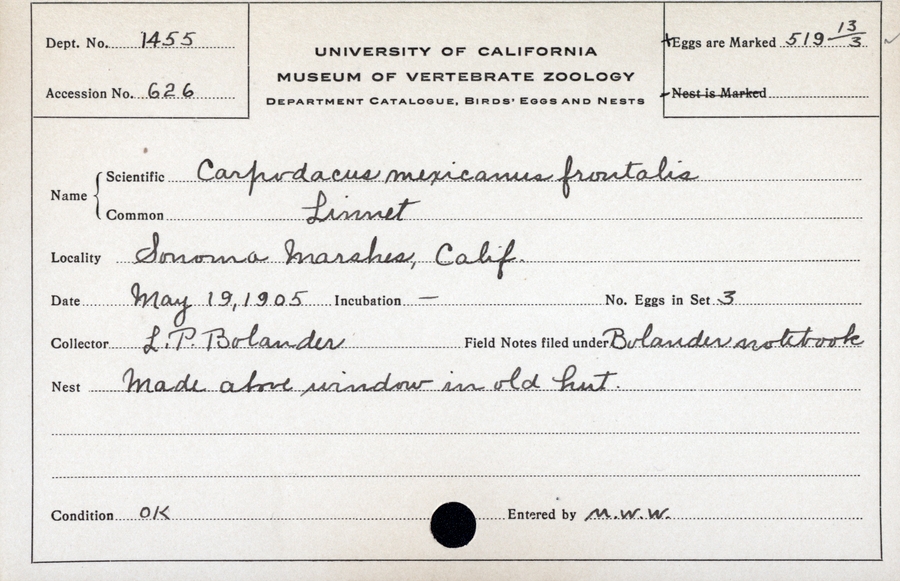 Dept. No. 1455
Accession No. 626
UNIVERSITY OF CALIFORNIA
MUSEUM OF VERTEBRATE ZOOLOGY
DEPARTMENT CATALOGUE, BIRDS' EGGS AND NESTS
Eggs are Marked 519 13/3
Nest is Marked
Name { Scientific Carpodacus mexicanus frontalis
Common Linnet
Locality Sonoma Marshes, Calif.
Date May 19, 1905 Incubation — No. Eggs in Set 3
Collector L. P. Bolander Field Notes filed under Bolander notebook
Nest Made above window in old hut.
Condition OK Entered by M.W.W.